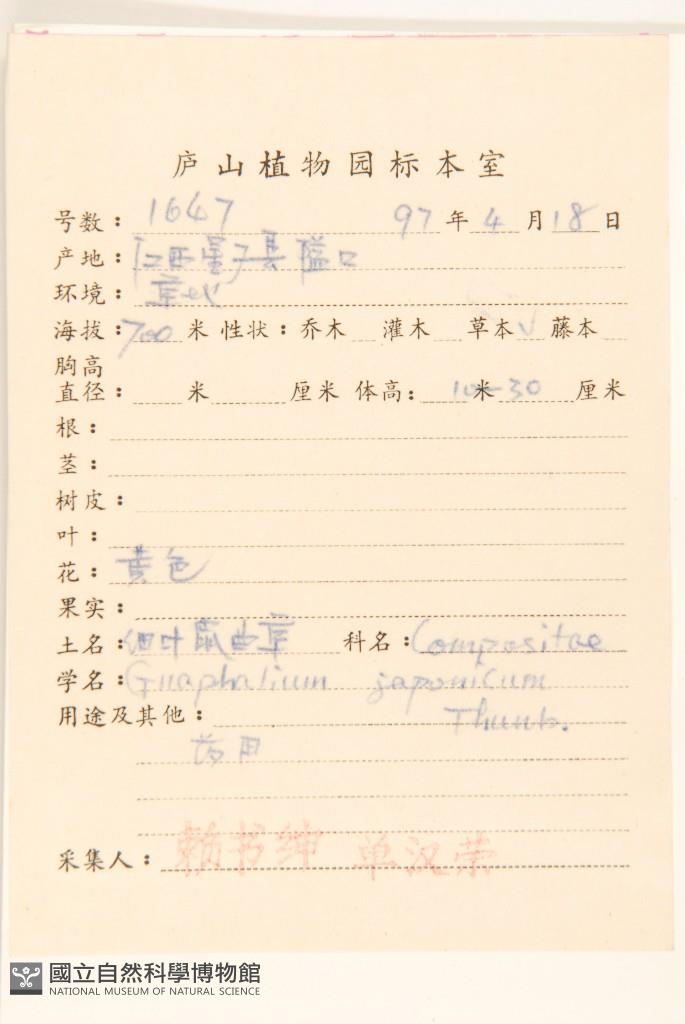 庐山植物园标本室
号数：1647 97年4月18日
产地：江西星子县隘口
环境：草地
海拔：700米 性状：乔木 灌木 草本√ 藤本
胸高
直径： 米 厘米 体高： 10米-30厘米
根：
茎：
树皮：
叶：
花：黄色
果实：
土名：细叶鼠曲草 科名：Compositae
学名：Gnaphalium japonicum
用途及其他： Thunb.
药用
采集人：赖书绅 单汉荣
國立自然科學博物館
NATIONAL MUSEUM OF NATURAL SCIENCE